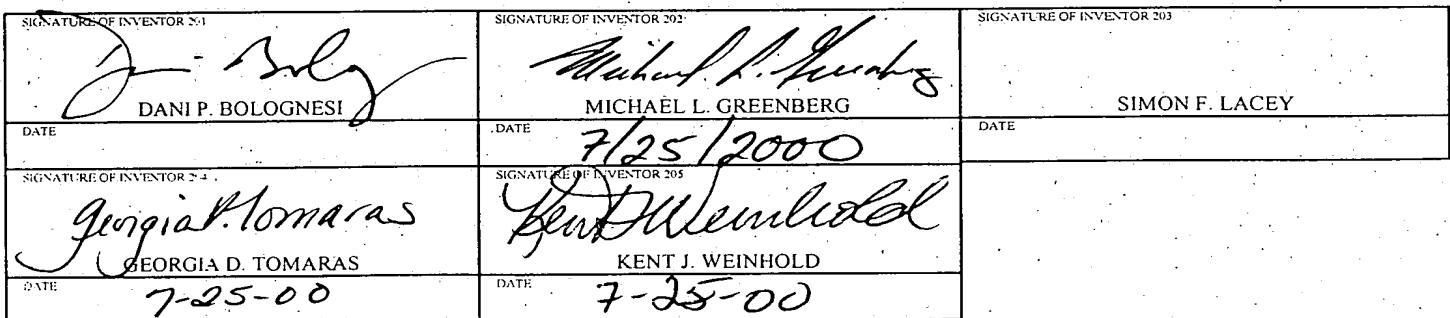 SIGNATURE OF INVENTOR 201
DANI P. BOLOGNESI
DATE
SIGNATURE OF INVENTOR 202
Michael L. Greenberg
MICHAEL L. GREENBERG
DATE
7/25/2000
SIGNATURE OF INVENTOR 203
SIMON F. LACEY
DATE
SIGNATURE OF INVENTOR
Georgia D. Tomaras
GEORGIA D. TOMARAS
DATE
7-25-00
SIGNATURE OF INVENTOR 205
Kent J Weinhold
KENT J. WEINHOLD
DATE
7-25-00